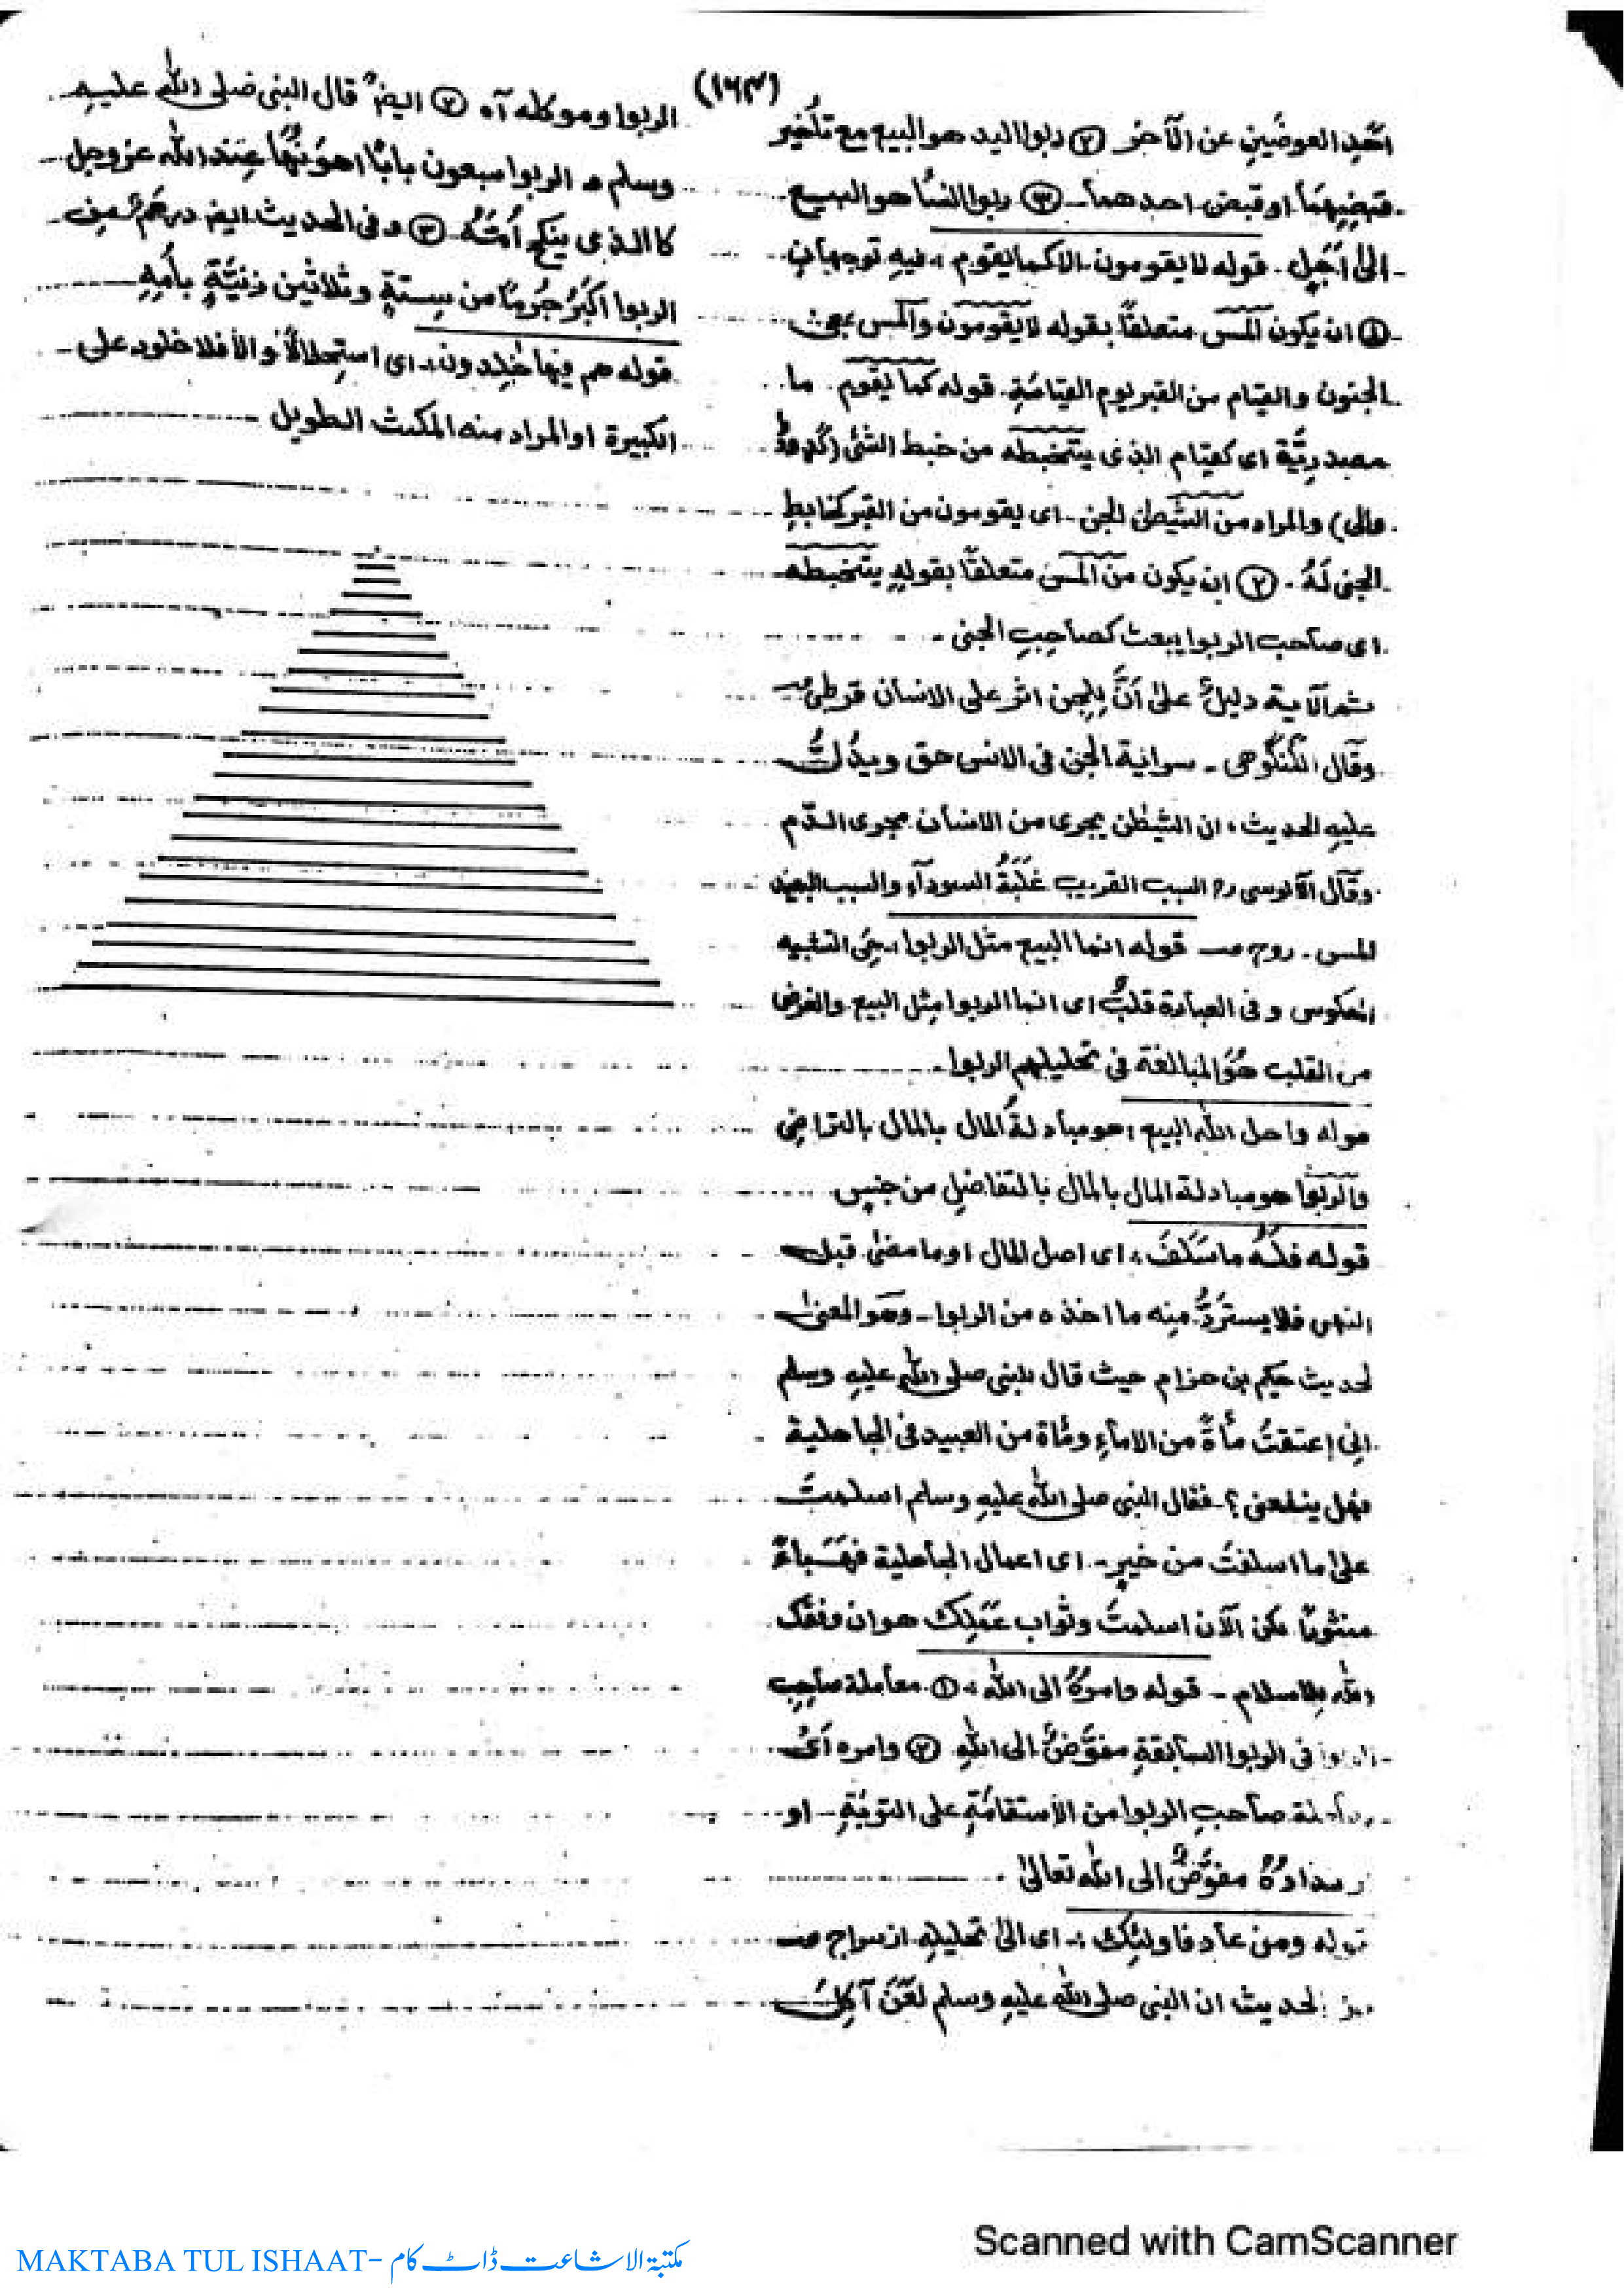 (١٦٣)
احد العوضين عن الآخر ② ربوا اليد هو البيع مع تأخير
قبضهما او قبض احدهما ـ ③ ربوا النسأ هو البيع
الىٰ اَجَلٍ ـ قوله لا يقومون الا كما يقوم ، فيه توجيهان
① ان يكون المس متعلقاً بقوله لا يقومون والمس بمعنى
الجنون والقيام من القبر يوم القيامة ـ قوله كما يقوم ـ ما
مصدريّة اى كقيام الذى يتخبطه من خبط الشئ (
والى) والمراد من الشيطٰن الجن ـ اى يقومون من القبر كخابط
الجنى لَهُ ـ ② ان يكون من المس متعلقاً بقولهِ يتخبطه
اى صاحب الربوا يبعث كصاحبِ الجنى ـ
ثم الآية دليلٌ علىٰ اَنَّ لِلجن اثر على الانسان قرطبى
وقال الگنگوهى ـ سراية الجن فى الانس حق ويدُلُّ
عليهِ الحديث ، ان الشيطٰن يجرى من الانسان مجرى الدّم
وقال آلآلوسى رح السبب القريب غَلَبَةُ السودآء والسبب البعيد
المس ـ روح صــ قوله انما البيع مثل الربوا ، التشبيه
المعكوس و فى العبارة قلبٌ اى انما الربوا مثل البيع والغرض
من القلب هُوَ المبالغة فى تحليلهم الربوا ـ
قوله واحل الله البيع ؛ هو مبادلةُ المال بالمال بالتراضى
والربوٰا هو مبادلة المال بالمال بالتفاضلِ من جنسٍ
قوله فلَهُ ماسَلَفَ ، اى اصل المال او ما مضىٰ قبل
النهى فلا يسترَدُّ منه ما اخذه من الربوا ـ وهو المعنىٰ
لحديث حكيم بن حزام حيث قال للنبى صلى الله عليهِ وسلم
اِنى اِعتقتُ مأةً من الامآءِ ومأة من العبيد فى الجاهلية
فهل ينفعنى ؟ ـ فقال النبى صلى الله عليهِ وسلم اسلمتَ
علىٰ ما اسلفتَ من خيرٍ ـ اى اعمال الجاهلية فهَبَاءً
منثورًا لكن الآن اسلمتَ وثواب عَمَلِكَ هو ان وفقك
الله للاسلام ـ قوله وامرهُ الى الله ؛ ① معاملة صاحب
الربوا فى الربوا السابقةِ مفوّضٌ الى اللهِ ② وامره اَىْ
معاملة صاحبِ الربوا من الاستقامَةِ على التوبَةِ ـ او
مفوّضٌ الى الله تعالىٰ ـ
قوله ومن عاد فاولئِك ؛ اى الىٰ تحليلهِ از سراج صــ
الحديث ان النبى صلى الله عليهِ وسلم لَعَنَ آكِلَ
الربوا وموكله آه ② ايضًا قال النبى صلى الله عليهِ
وسلم ، الربوا سبعون بابًا اهوَنُهَا عِنَد الله عز وجل
كا الذى ينكح اُمَّهُ ـ ③ و فى الحديث ايضا درهَمٌ من
الربوا اَكبَرُ جُرمًا من سِتةٍ وثلاثين زنيَّةٍ بأُمِهِ
قوله هم فيها خٰلِدون ، اى استِحلالًا و الا فلا خلود على
الكبيرة او المراد منه المكث الطويل
Scanned with CamScanner
MAKTABA TUL ISHAAT- مکتبۃ الاشاعت ڈاٹ کام